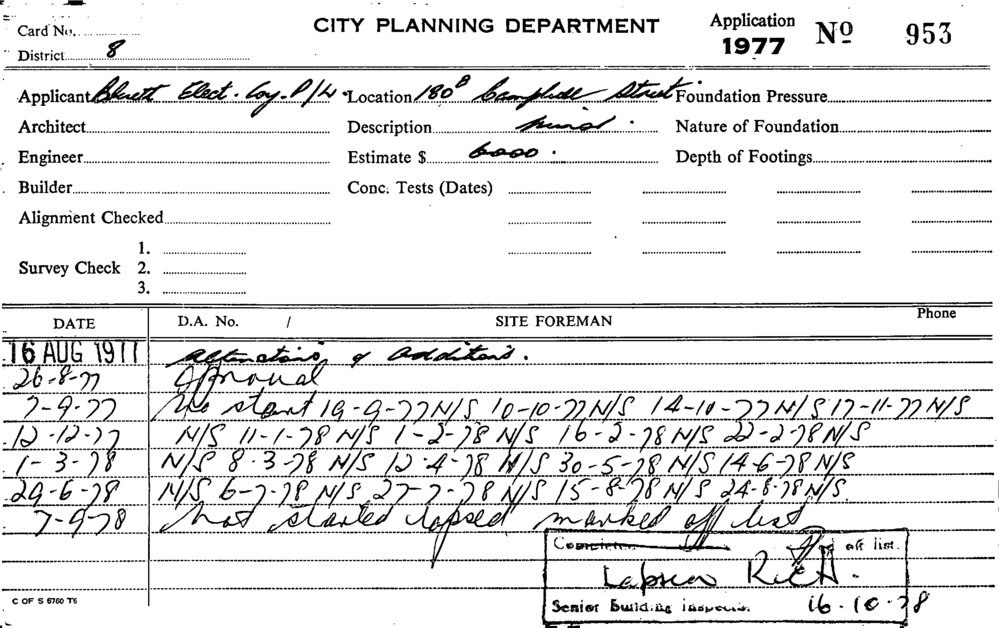 CITY PLANNING DEPARTMENT
Application 1977 Nº 953
Card No.
District 8
Applicant Elect. Coy. P/L. Location 180B Campbell Street Foundation Pressure
Architect Description minor. Nature of Foundation
Engineer Estimate $ 6000. Depth of Footings
Builder Conc. Tests (Dates)
Alignment Checked
1.
Survey Check 2.
3.
DATE D.A. No. / SITE FOREMAN Phone
16 AUG 1977 Alterations & additions.
26-8-77 Approval
7-9-77 No start 19-9-77 N/S 10-10-77 N/S 14-10-77 N/S 17-11-77 N/S
12-12-77 N/S 11-1-78 N/S 1-2-78 N/S 16-2-78 N/S 22-2-78 N/S
1-3-78 N/S 8-3-78 N/S 12-4-78 N/S 30-5-78 N/S 14-6-78 N/S
29-6-78 N/S 6-7-78 N/S 27-7-78 N/S 15-8-78 N/S 24-8-78 N/S.
7-9-78 Not started lapsed marked off list
off list.
Senior Building Inspector. 16-10-78
C OF S 6760 T6